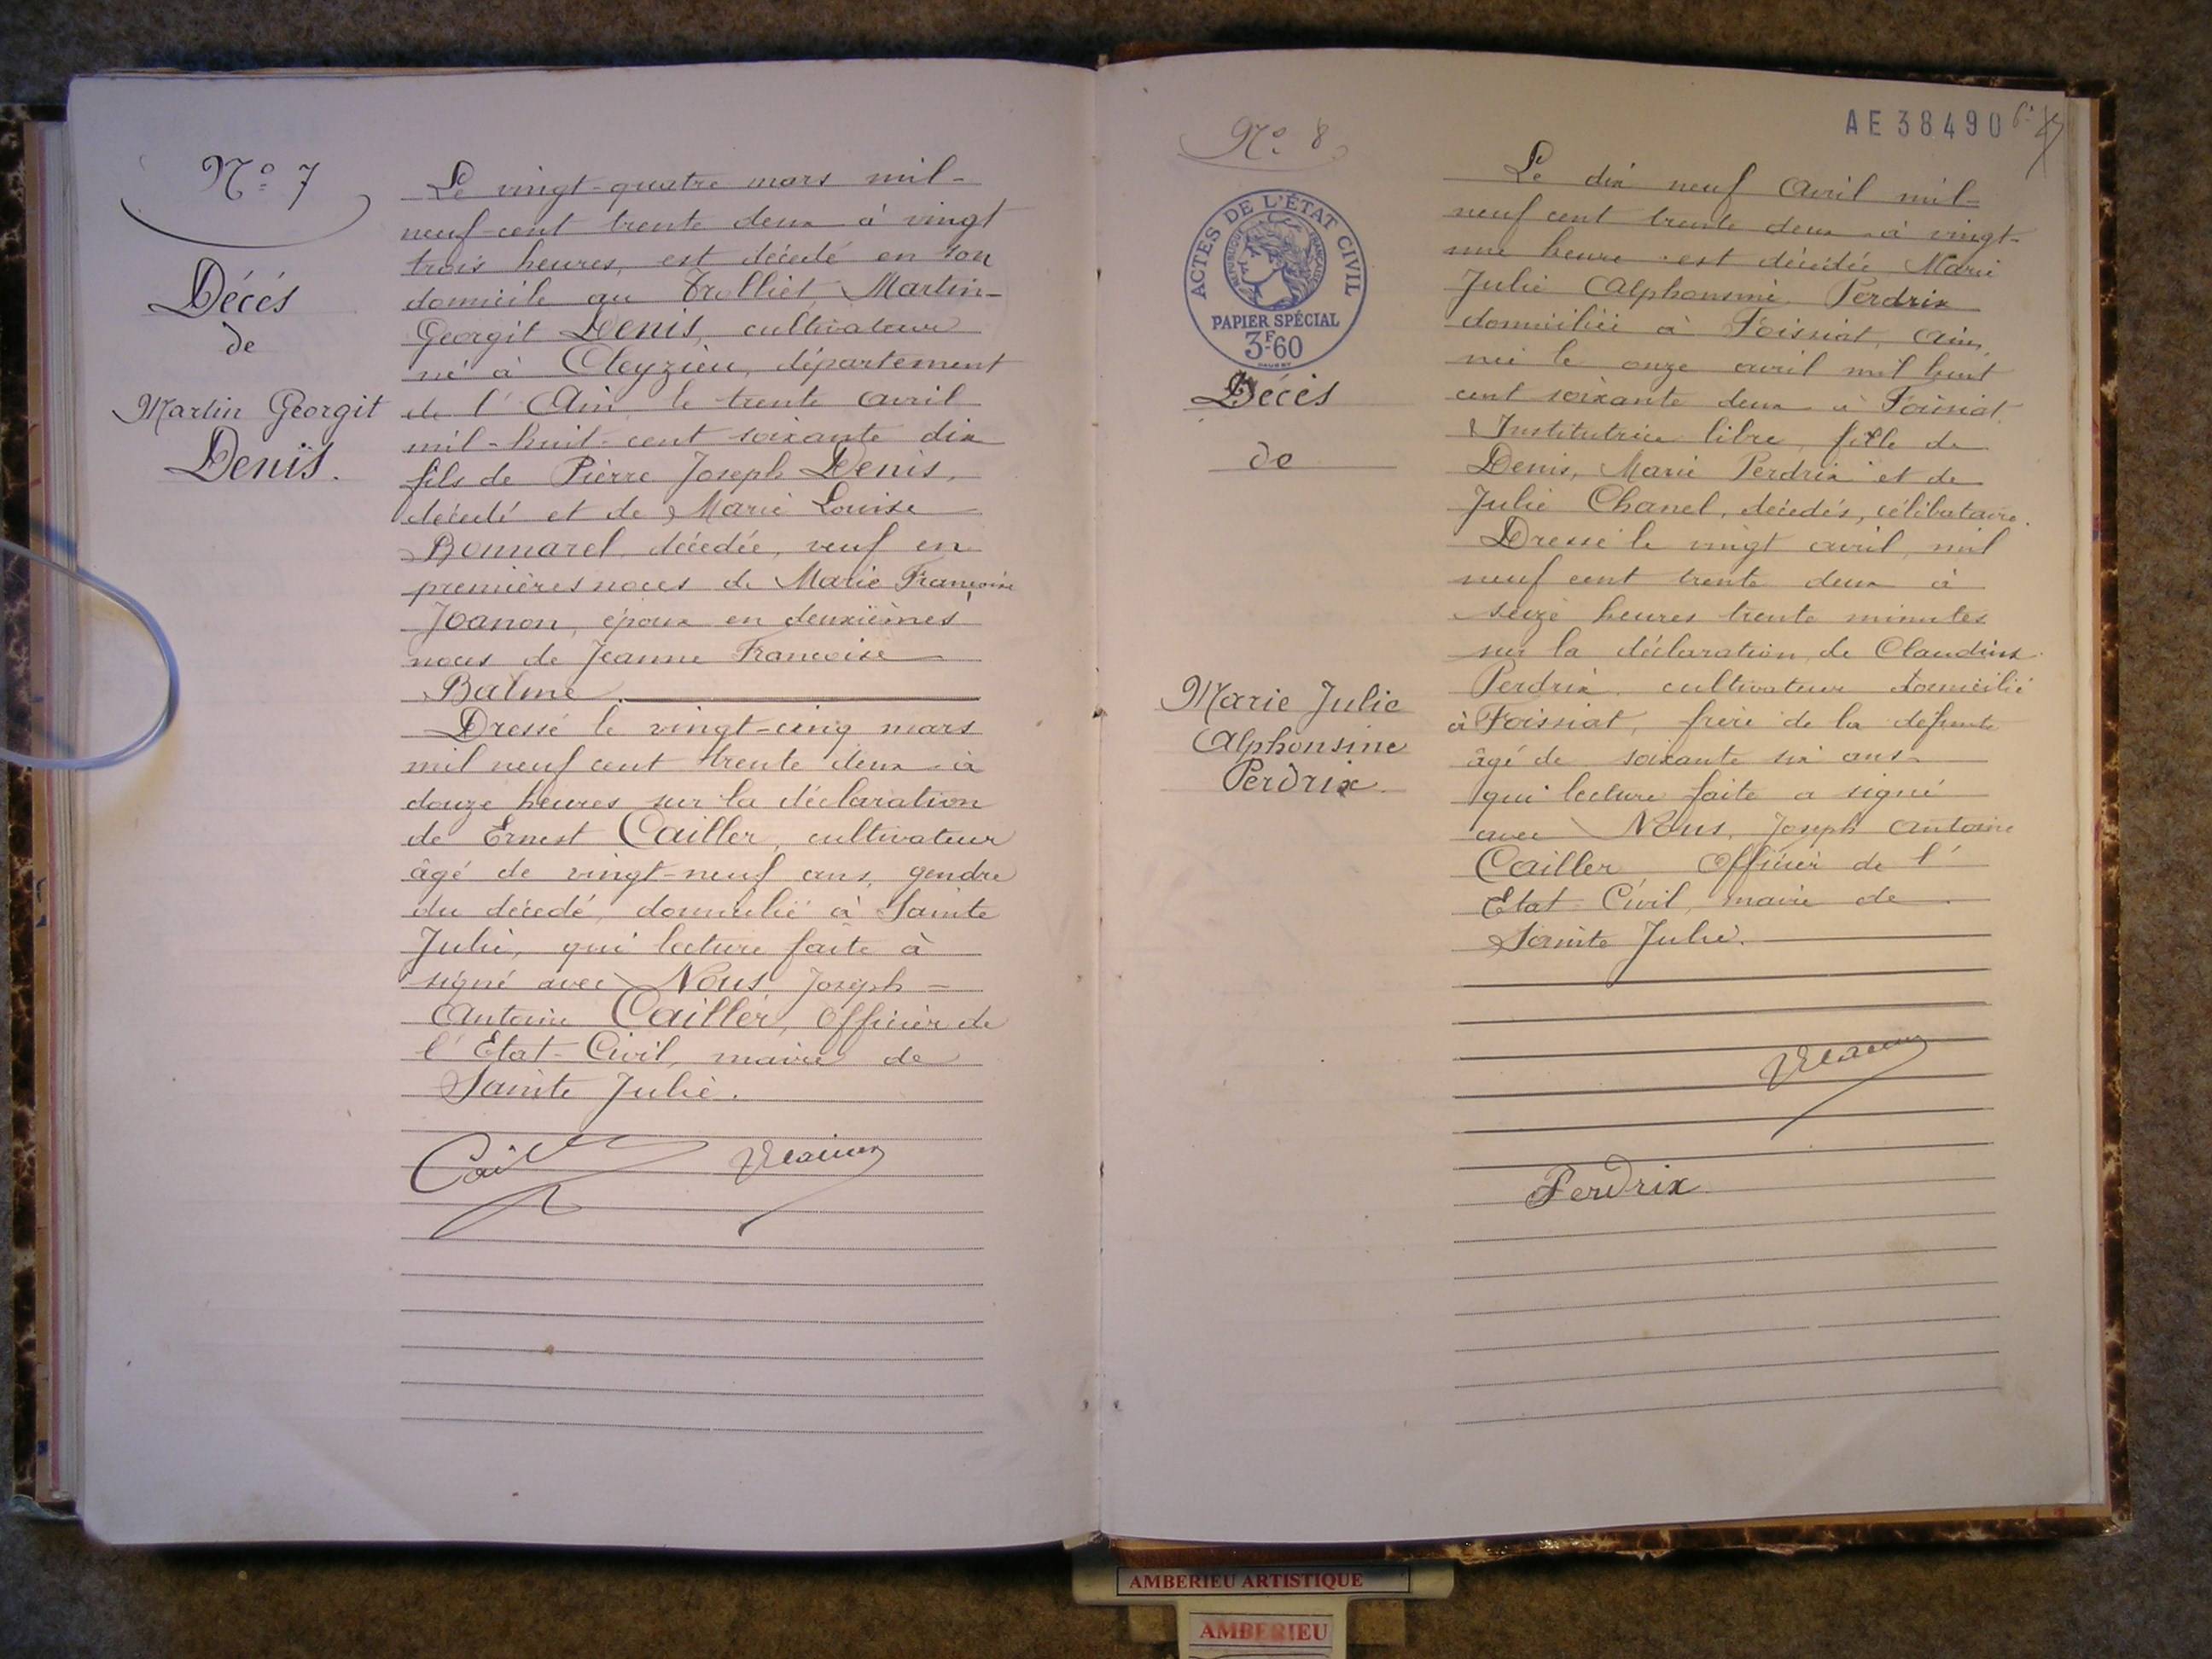 N° 7
Décés
de
Martin Georgit
Denis.
Le vingt-quatre mars mil-
neuf-cent trente deux à vingt
trois heures, est décédé en son
domicile au Trolliet, Martin-
Georgit Denis, cultivateur
né à Cleyzieu, département
de l'Ain, le trente avril
mil-huit-cent soixante dix
fils de Pierre Joseph Denis,
décédé et de Marie Louise
Bonnarel, décédée, veuf en
premières noces de Marie Françoise
Joanon, époux en deuxièmes
noces de Jeanne Françoise
Balme.
Dressé le vingt-cinq mars
mil neuf cent trente deux à
douze heures sur la déclaration
de Ernest Cailler, cultivateur
âgé de vingt-neuf ans, gendre
du décedé, domicilié à Sainte
Julie, qui lecture faite à
signé avec Nous Joseph-
Antoine Cailler, Officier de
l'Etat-Civil, maire de
Sainte Julie.
AE 38490
N° 8
ACTES DE L'ÉTAT CIVIL
RÉPUBLIQUE FRANÇAISE
PAPIER SPÉCIAL
3F-60
Décés
de
Marie Julie
Alphonsine
Perdrix.
Le dix neuf Avril mil-
neuf cent trente deux à vingt-
une heure est décédée Marie
Julie Alphonsine Perdrix
domiciliée à Foissiat, Ain,
née le onze avril mil huit
cent soixante deux à Foissiat
Institutrice libre, fille de
Denis, Marie Perdrix et de
Julie Chanel, décédés, célibataire.
Dressé le vingt avril, mil
neuf cent trente deux à
seize heures trente minutes
sur la déclaration de Claudius
Perdrix, cultivateur domicilié
à Foissiat, frère de la défunte
âgé de soixante six ans
qui lecture faite a signé
avec Nous, Joseph Antoine
Cailler, Officier de l'
Etat Civil, maire de
Sainte Julie.
Perdrix
AMBERIEU ARTISTIQUE
AMBERIEU